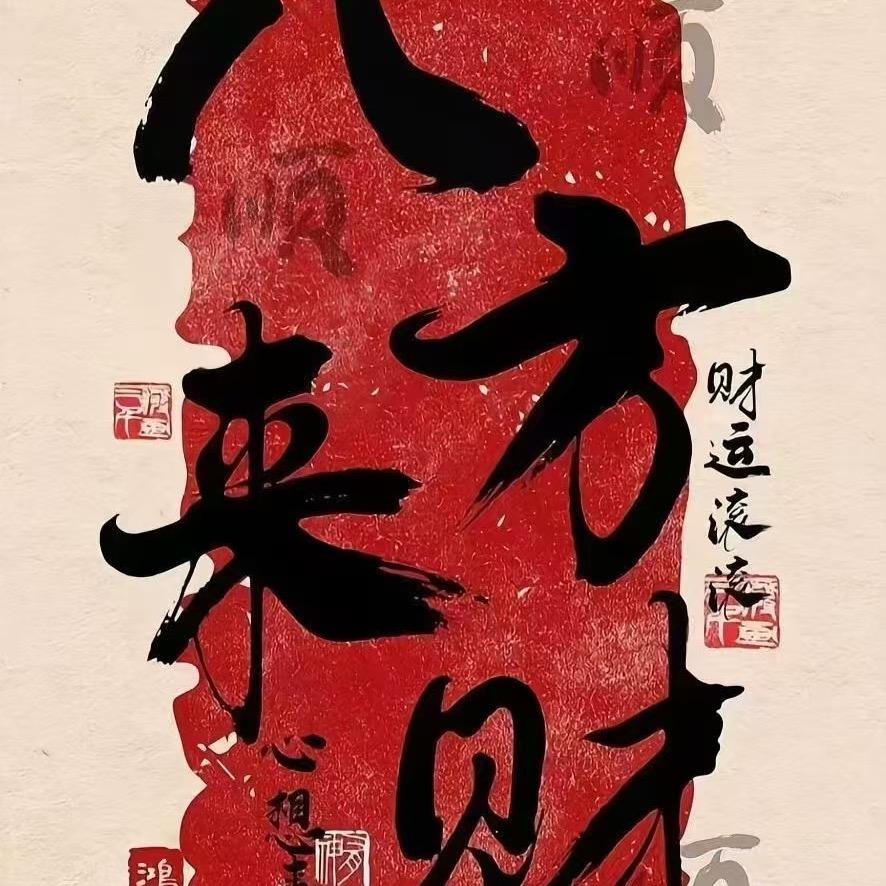 八方来财
财运滚滚
心想
顺
顺
鸿